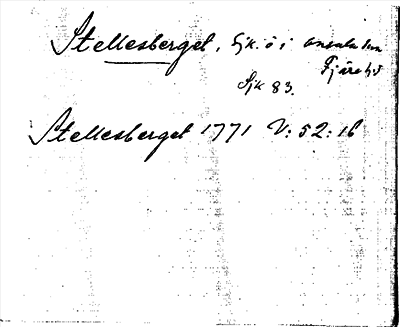 Stellesberget, Sjk. ö i Onsala sn
Fjäre hd
Sjk 83.
Stellesberget 1771 V: 52: 16